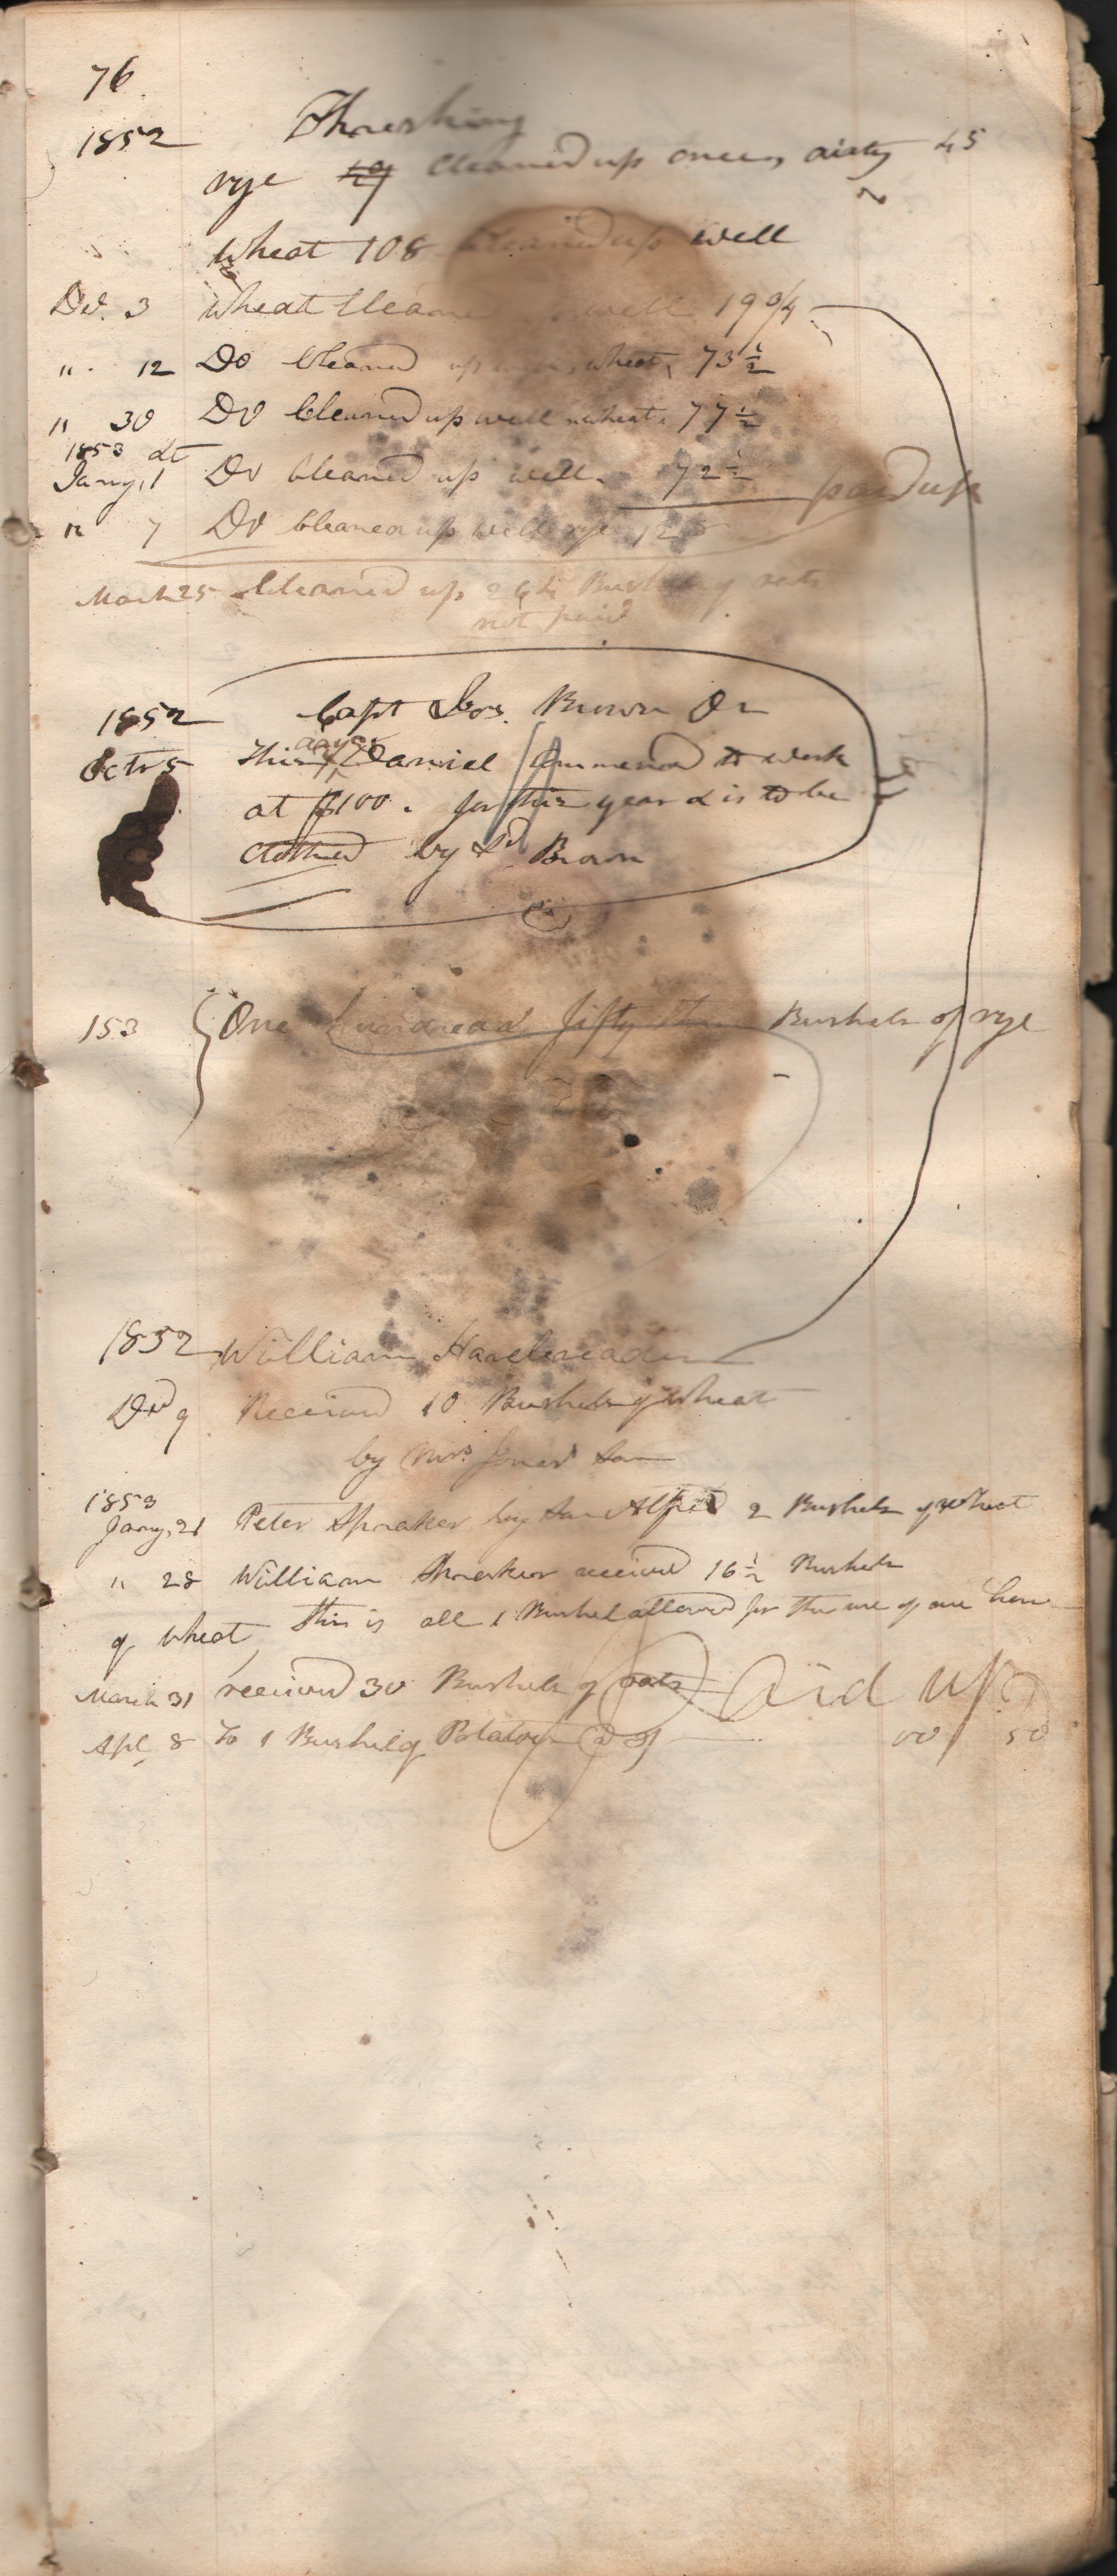 76
1852 Threshing
rye 49 Cleaned up once, dirty 45
wheat 108 Cleaned up well
De. 3 wheat Cleaned well 19 3/4
" 12 Do Cleaned up wheat, 73 1/2
" 30 Do Cleaned up well wheat, 77 1/2
1853
Jany, 1 Do Cleaned up well. 72 1/2 paid up
" 7 Do Cleaned up well rye
March 25 Cleaned up, Bushels of oats
not paid
1852 Capt Jos. Brown Dr
Octr 5 This Daniel Commenced to work
at $100. for this year & is to be
clothed by Sd Brown
153 One hundread fifty three Bushels of rye
1852 William
9 Received 10 Bushels of wheat
by Mrs Jones Son
1853
Jany, 21 Peter Spraker by Son Alfred 2 Bushels of Wheat
" 28 William received 16 1/2 Bushels
of wheat, this is all 1 Bushel allowed for the use of
March 31 received 30 Bushels of oats Paid up
Apl, 8 To 1 Bushel of Potatoes 00 50